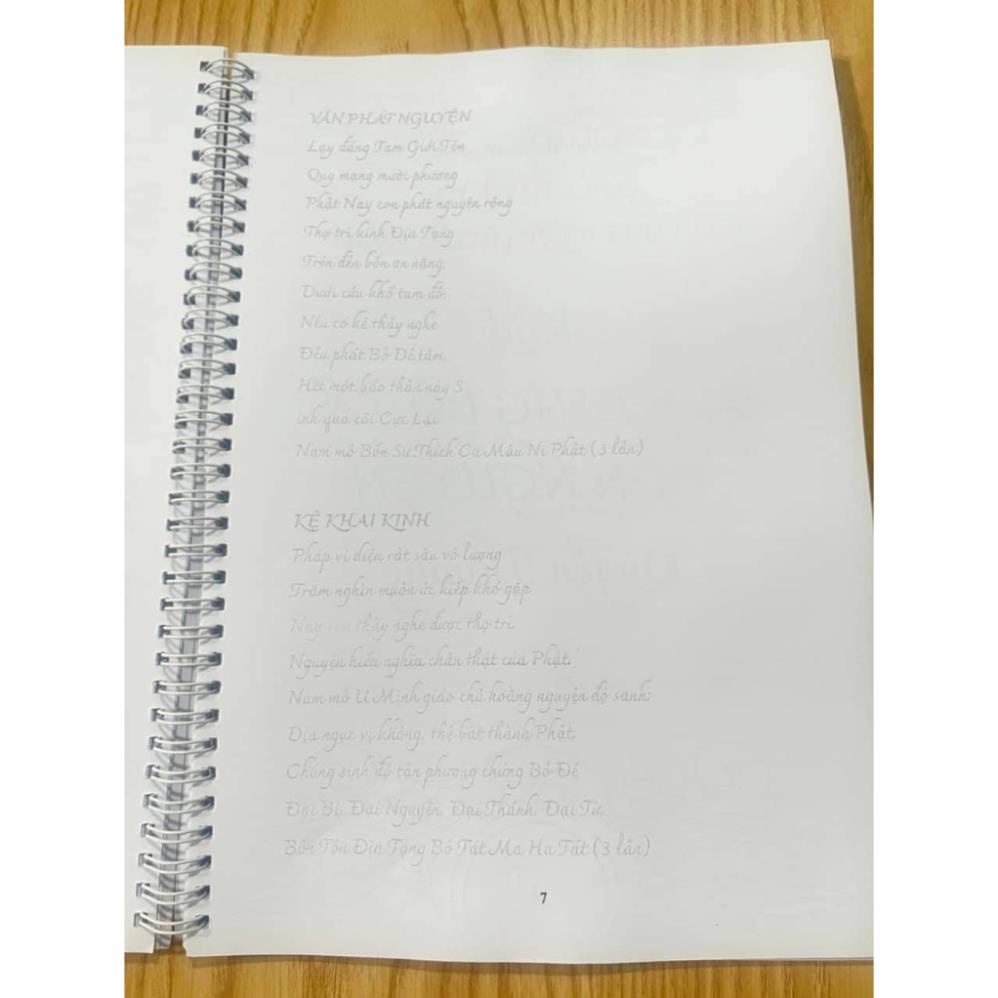 VĂN PHÁT NGUYỆN
Lạy đấng Tam Giới Tôn
Quy mạng mười phương
Phật Nay con phát nguyện rộng
Thọ trì kinh Địa Tạng
Trên đền bốn ơn nặng
Dưới cứu khổ tam đồ.
Nếu có kẻ thấy nghe
Đều phát Bồ Đề tâm
Hết một báo thân này S
inh qua cõi Cực Lạc
Nam mô Bổn Sư Thích Ca Mâu Ni Phật (3 lần)
KỆ KHAI KINH
Pháp vi diệu rất sâu vô lượng
Trăm nghìn muôn ức kiếp khó gặp
Nay con thấy nghe được thọ trì
Nguyện hiểu nghĩa chân thật của Phật.
Nam mô U Minh giáo chủ hoằng nguyện độ sanh:
Địa ngục vị không, thệ bất thành Phật,
Chúng sinh độ tận phương chứng Bồ Đề
Đại Bi, Đại Nguyện, Đại Thánh, Đại Từ,
Bổn Tôn Địa Tạng Bồ Tát Ma Ha Tát (3 lần)
7